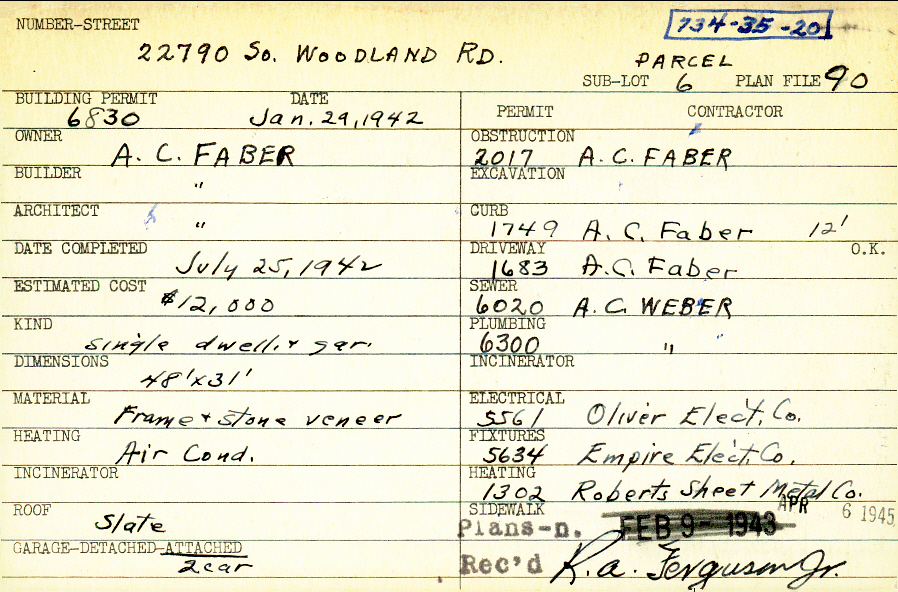 NUMBER-STREET
734-35-20
22790 So. WOODLAND RD.
PARCEL
SUB-LOT 6 PLAN FILE 90
BUILDING PERMIT DATE
6830 Jan. 29, 1942
OWNER
A. C. FABER
BUILDER
"
ARCHITECT
"
DATE COMPLETED
July 25, 1942
ESTIMATED COST
$12,000
KIND
single dwell. & gar.
DIMENSIONS
48' x 31'
MATERIAL
Frame & stone veneer
HEATING
Air Cond.
INCINERATOR
ROOF
Slate
GARAGE-DETACHED-ATTACHED
2 car
PERMIT CONTRACTOR
OBSTRUCTION
2017 A. C. FABER
EXCAVATION
CURB
1749 A. C. Faber 12'
DRIVEWAY O.K.
1683 A.C. Faber
SEWER
6020 A. C. WEBER
PLUMBING
6300 "
INCINERATOR
ELECTRICAL
5561 Oliver Elect. Co.
FIXTURES
5634 Empire Elect. Co.
HEATING
1302 Roberts Sheet Metal Co.
SIDEWALK APR 6 1945
Plans-n. FEB 9- 1943
Rec'd R. a. Ferguson Jr.